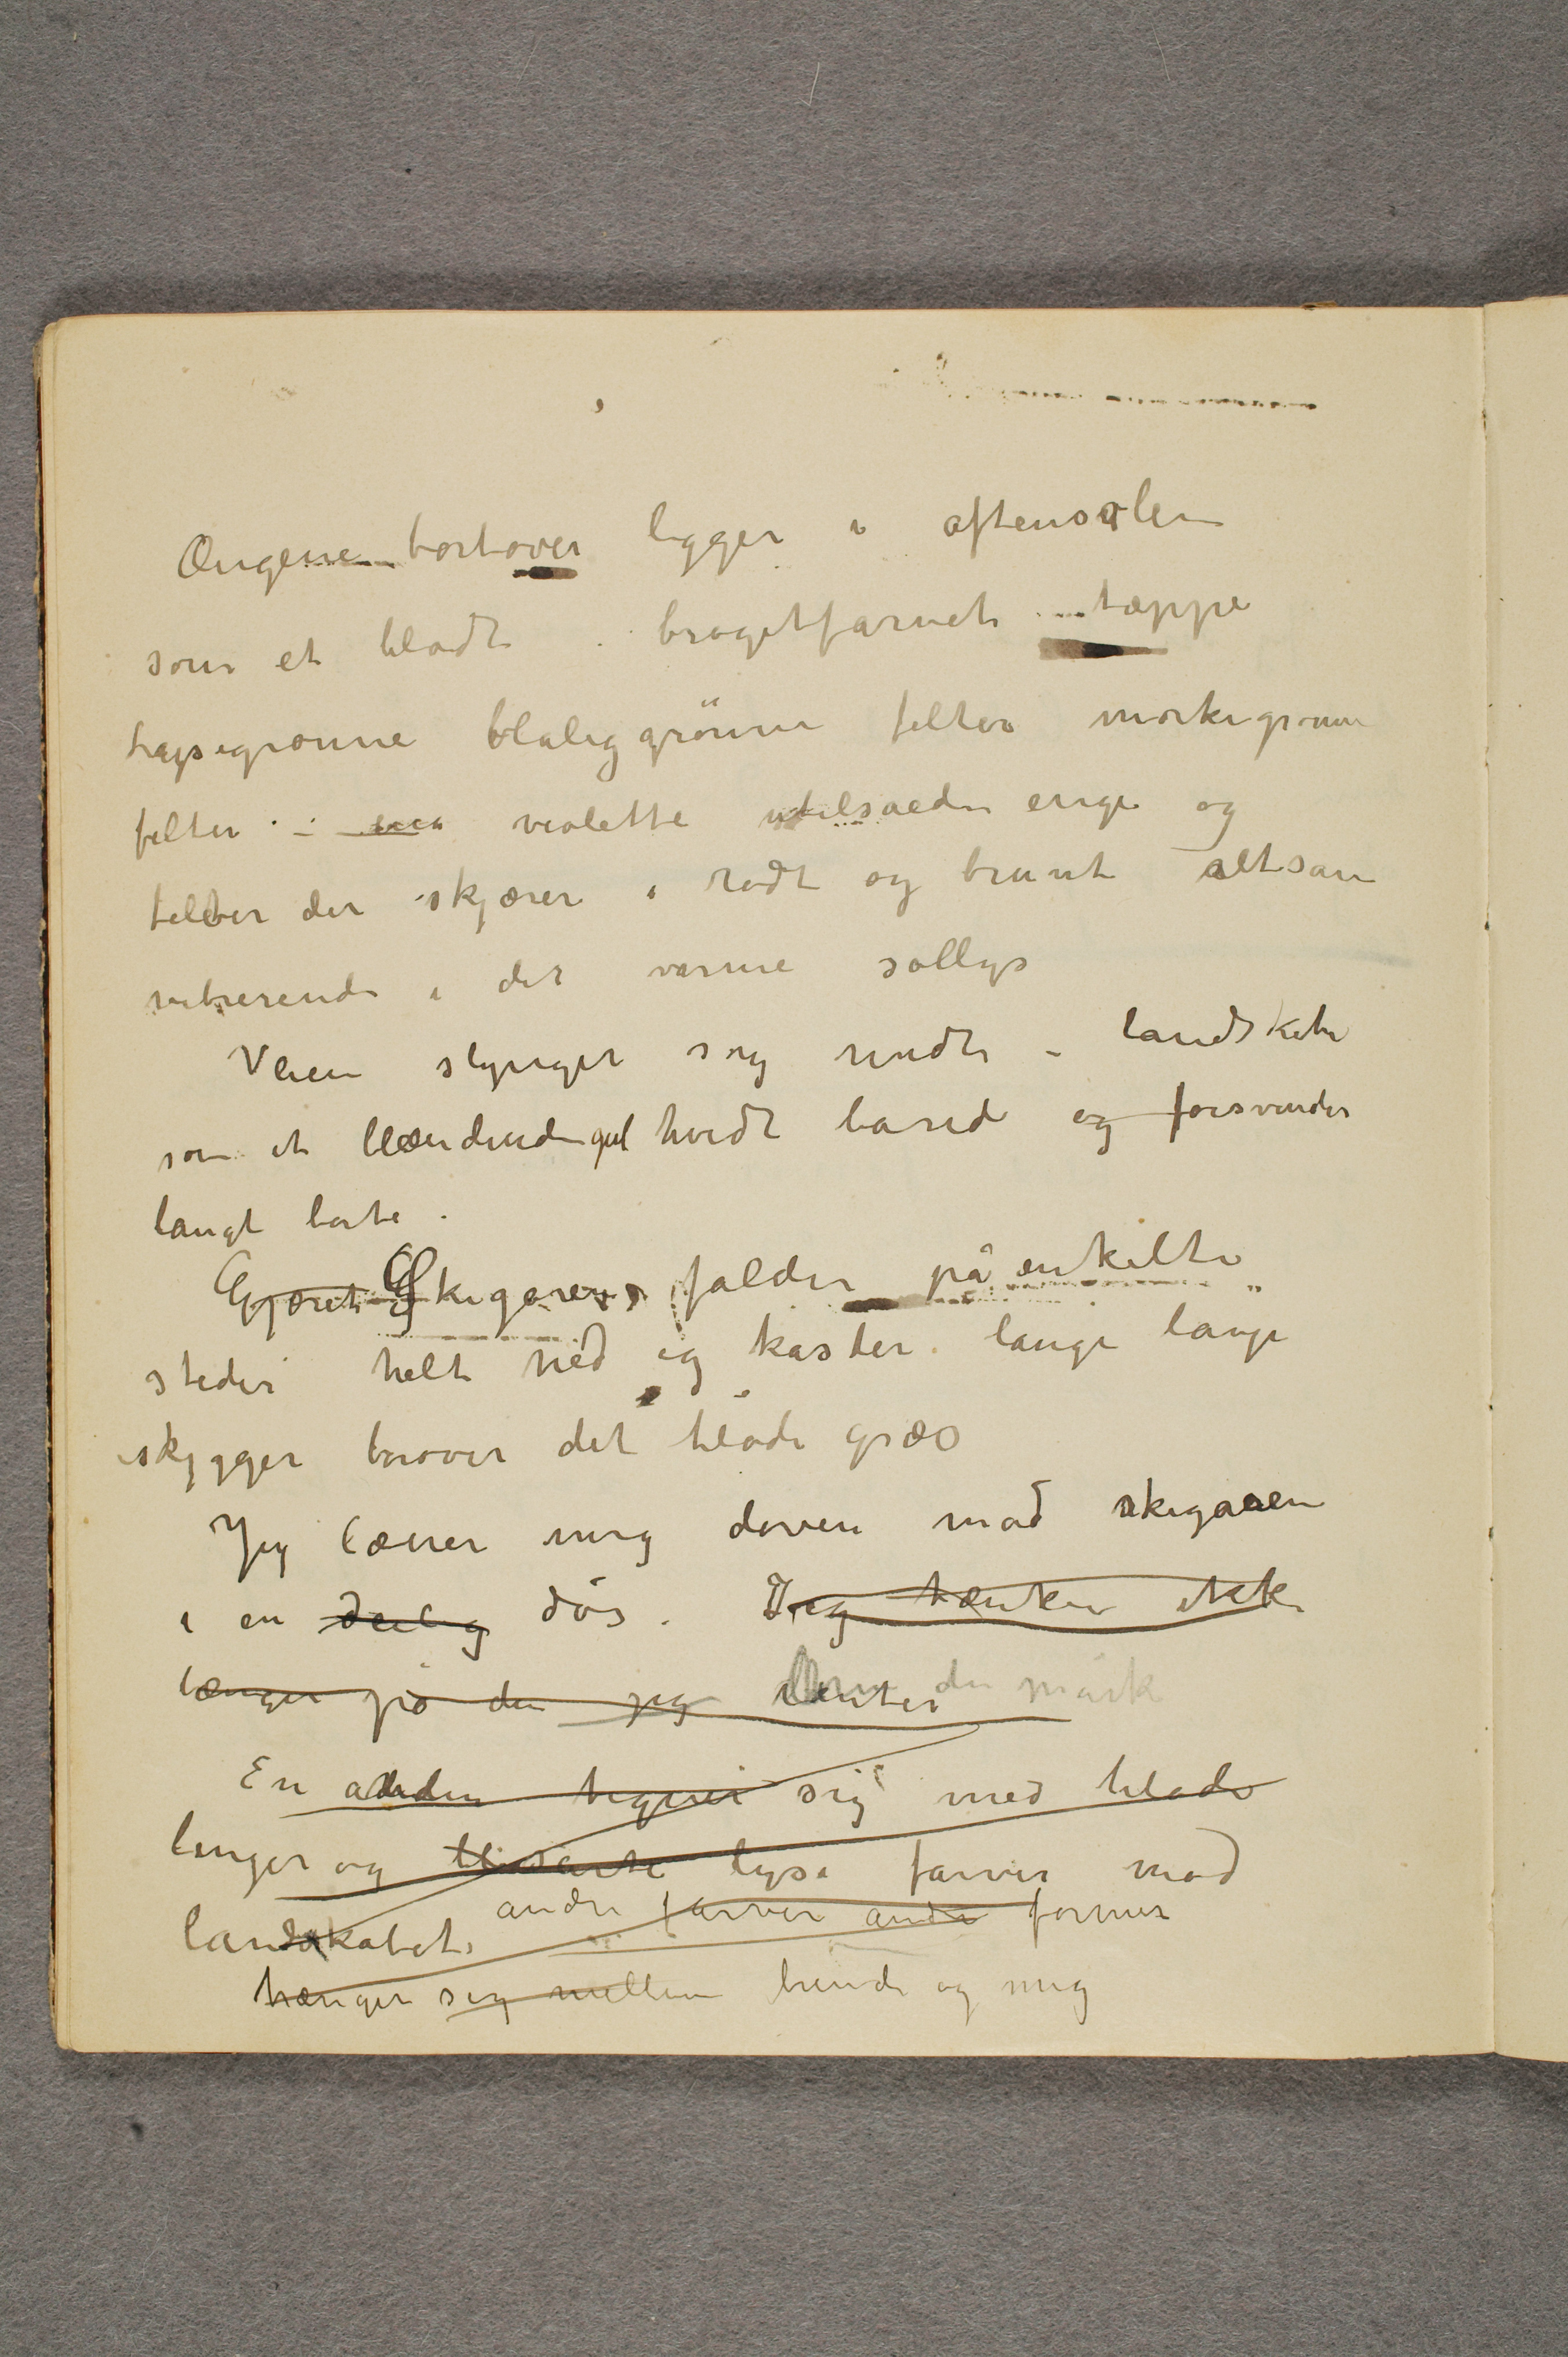 Ængene bortover ligger i aftensolen
som et blødt brogetfarvet tæppe
lysegrønne blåliggrönne felter mørkegrønne
felter – violette utilsaede enge og
felter der skjærer i rødt og brunt altsam
vibrerende i det varme sollys
Veien slynger sig rundt i landskabet
som et blændende gul hvidt band og forsvinder
langt borte.
Gjæret Skigaren falder på enkelte
steder helt ned og kaster lange lange
skygger borover det bløde græs
Jeg læner mig doven mod skigaren
i en deilig dös. Jeg tænker ikke
længer på den jeg venter den mørk
En anden tegner sig med bløde
linjer og lyse farver mod
landskabet andre farver andre former
hænger sig mellem hende og mig